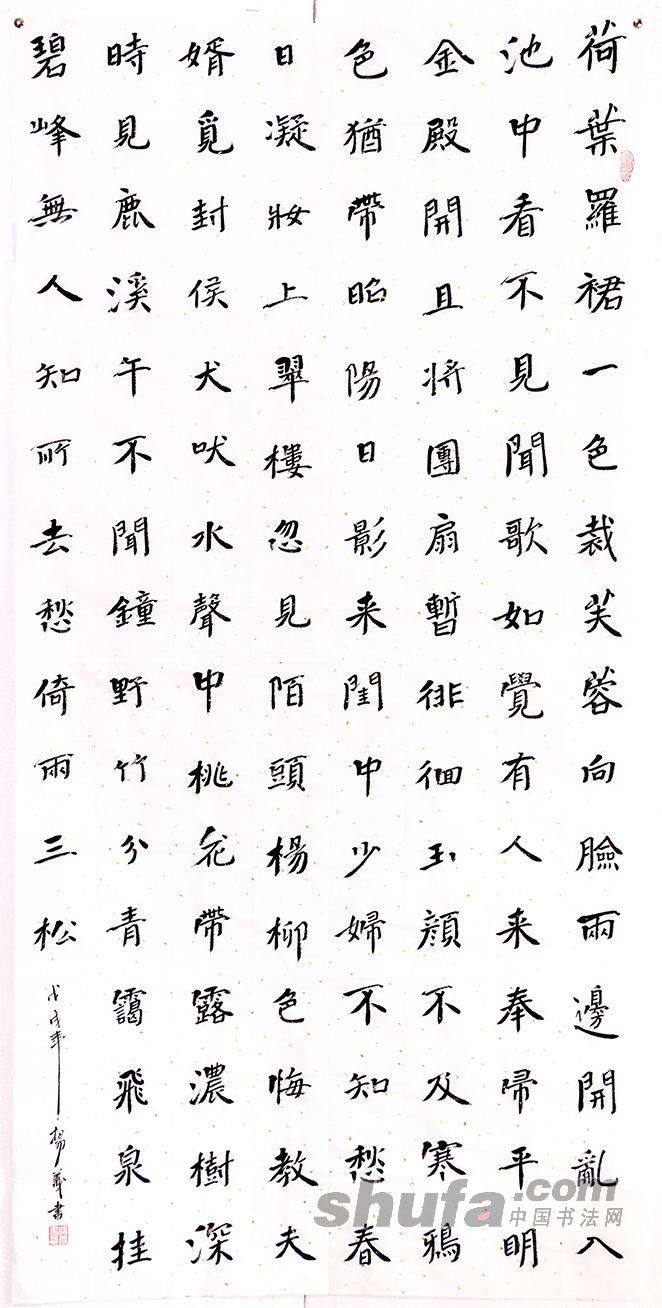 荷葉羅裙一色裁芙蓉向臉兩邊開亂入
池中看不見聞歌如覺有人来奉帚平明
金殿開且将團扇暫徘徊玉顔不及寒鴉
色猶帶昭陽日影来閨中少婦不知愁春
日凝妝上翠樓忽見陌頭楊柳色悔教夫
婿覓封侯犬吠水聲中桃花帶露濃樹深
時見鹿溪午不聞鐘野竹分青靄飛泉挂
碧峰無人知所去愁倚兩三松
戊戌年楊義書
shufa.com
中国书法网